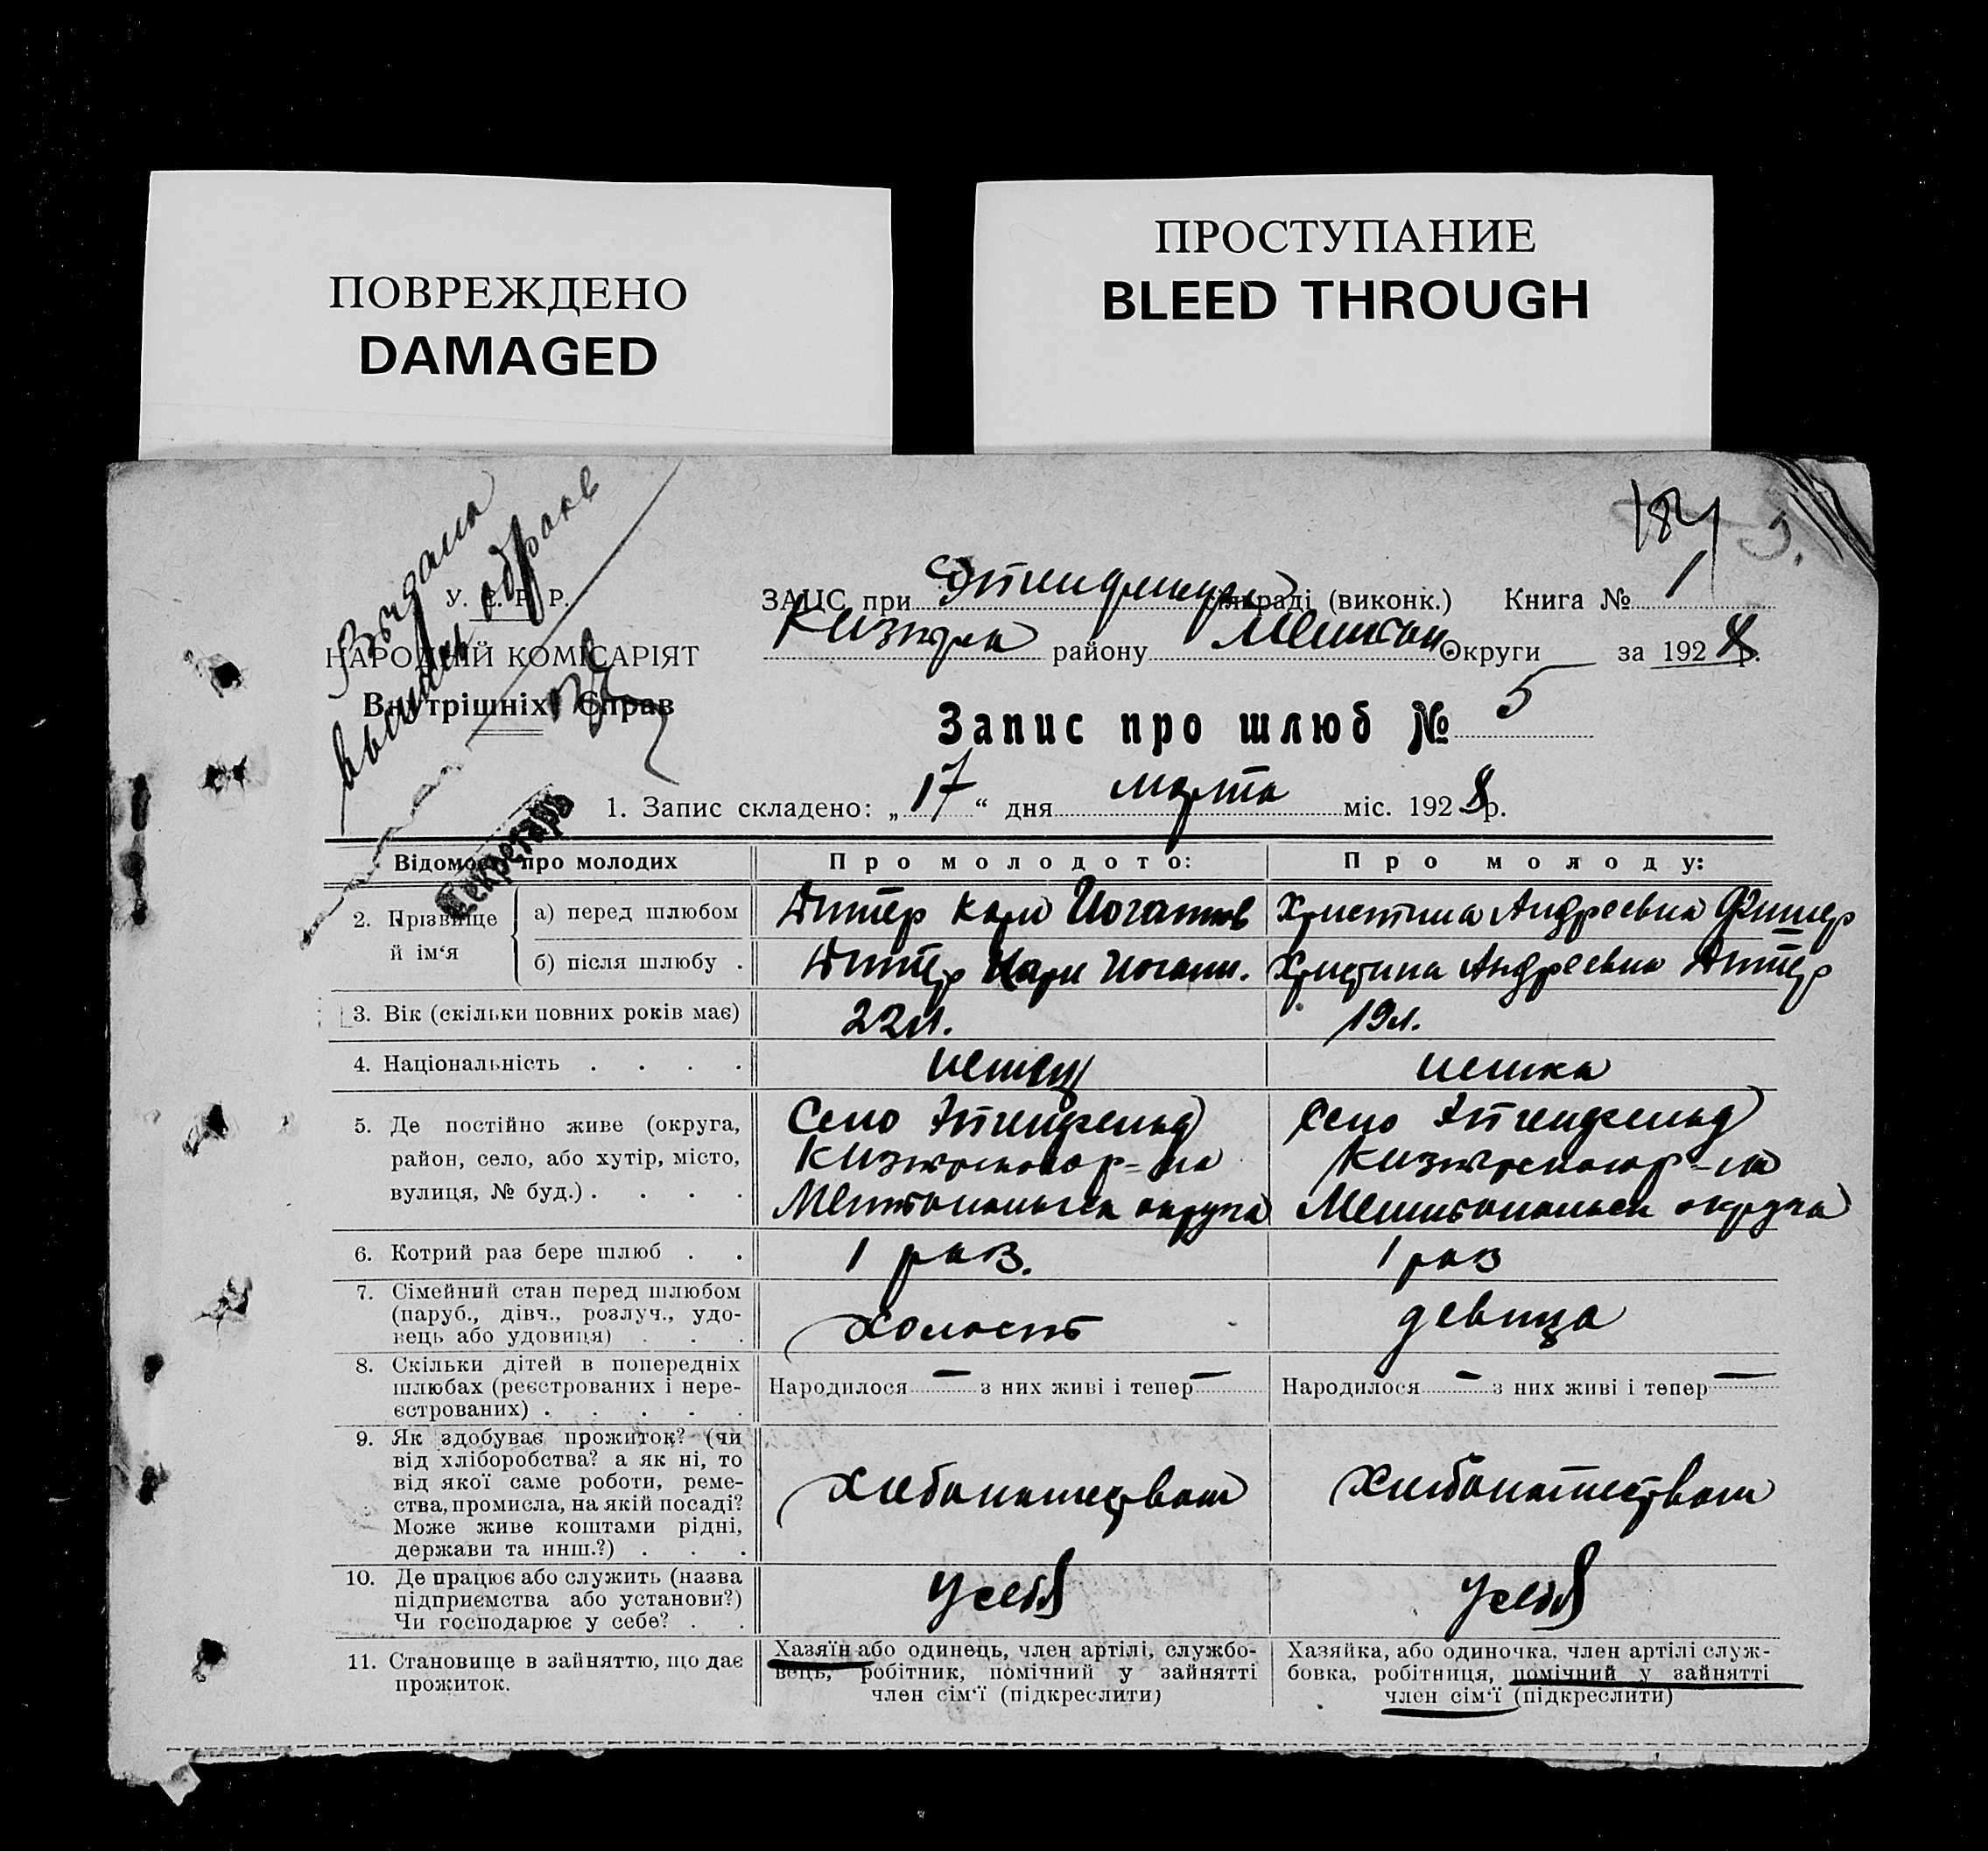 ПОВРЕЖДЕНО
DAMAGED
ПРОСТУПАНИЕ
BLEED THROUGH
184
5.
Выдана
выпись о браке
У. С. Р. Р.
НАРОДНІЙ КОМІСАРІЯТ
Внутрішніх Справ
Секретарь
ЗАЦС при сільраді (виконк.) Книга № 1
району Округи за 1928 р.
Запис про шлюб № 5
1. Запис складено: „ 17 “ дня марта міс. 1928 р.
Відомості про молодих
Про молодого:
Про молоду:
2. Прізвище й ім‘я
а) перед шлюбом
Карл
Христина Андреевна Фишер
б) після шлюбу .
Карл Иоганн.
Христина Андреевна
3. Вік (скільки повних років має)
22 л.
19 л.
4. Національність . . . .
немец
немка
5. Де постійно живе (округа,
район, село, або хутір, місто,
вулиця, № буд.) . . . .
Село
округа
Село
округа
6. Котрий раз бере шлюб . .
1 раз.
1 раз
7. Сімейний стан перед шлюбом
(паруб., дівч., розлуч., удо-
вець або удовиця) . . .
холост
девица
8. Скільки дітей в попередніх
шлюбах (реєстрованих і нере-
єстрованих) . . . . .
Народилося — з них живі і тепер —
Народилося — з них живі і тепер —
9. Як здобуває прожиток? (чи
від хліборобства? а як ні, то
від якої саме роботи, реме-
ства, промисла, на якій посаді?
Може живе коштами рідні,
держави та инш.?) . . .
хлебопашеством
хлебопашеством
10. Де працює або служить (назва
підприємства або установи?)
Чи господарює у себе? . .
у себя
у себя
11. Становище в зайняттю, що дає
прожиток.
Хазяїн або одинець, член артілі, службо-
вець, робітник, помічний у зайнятті
член сім‘ї (підкреслити)
Хазяйка, або одиночка, член артілі служ-
бовка, робітниця, помічний у зайнятті
член сім‘ї (підкреслити)